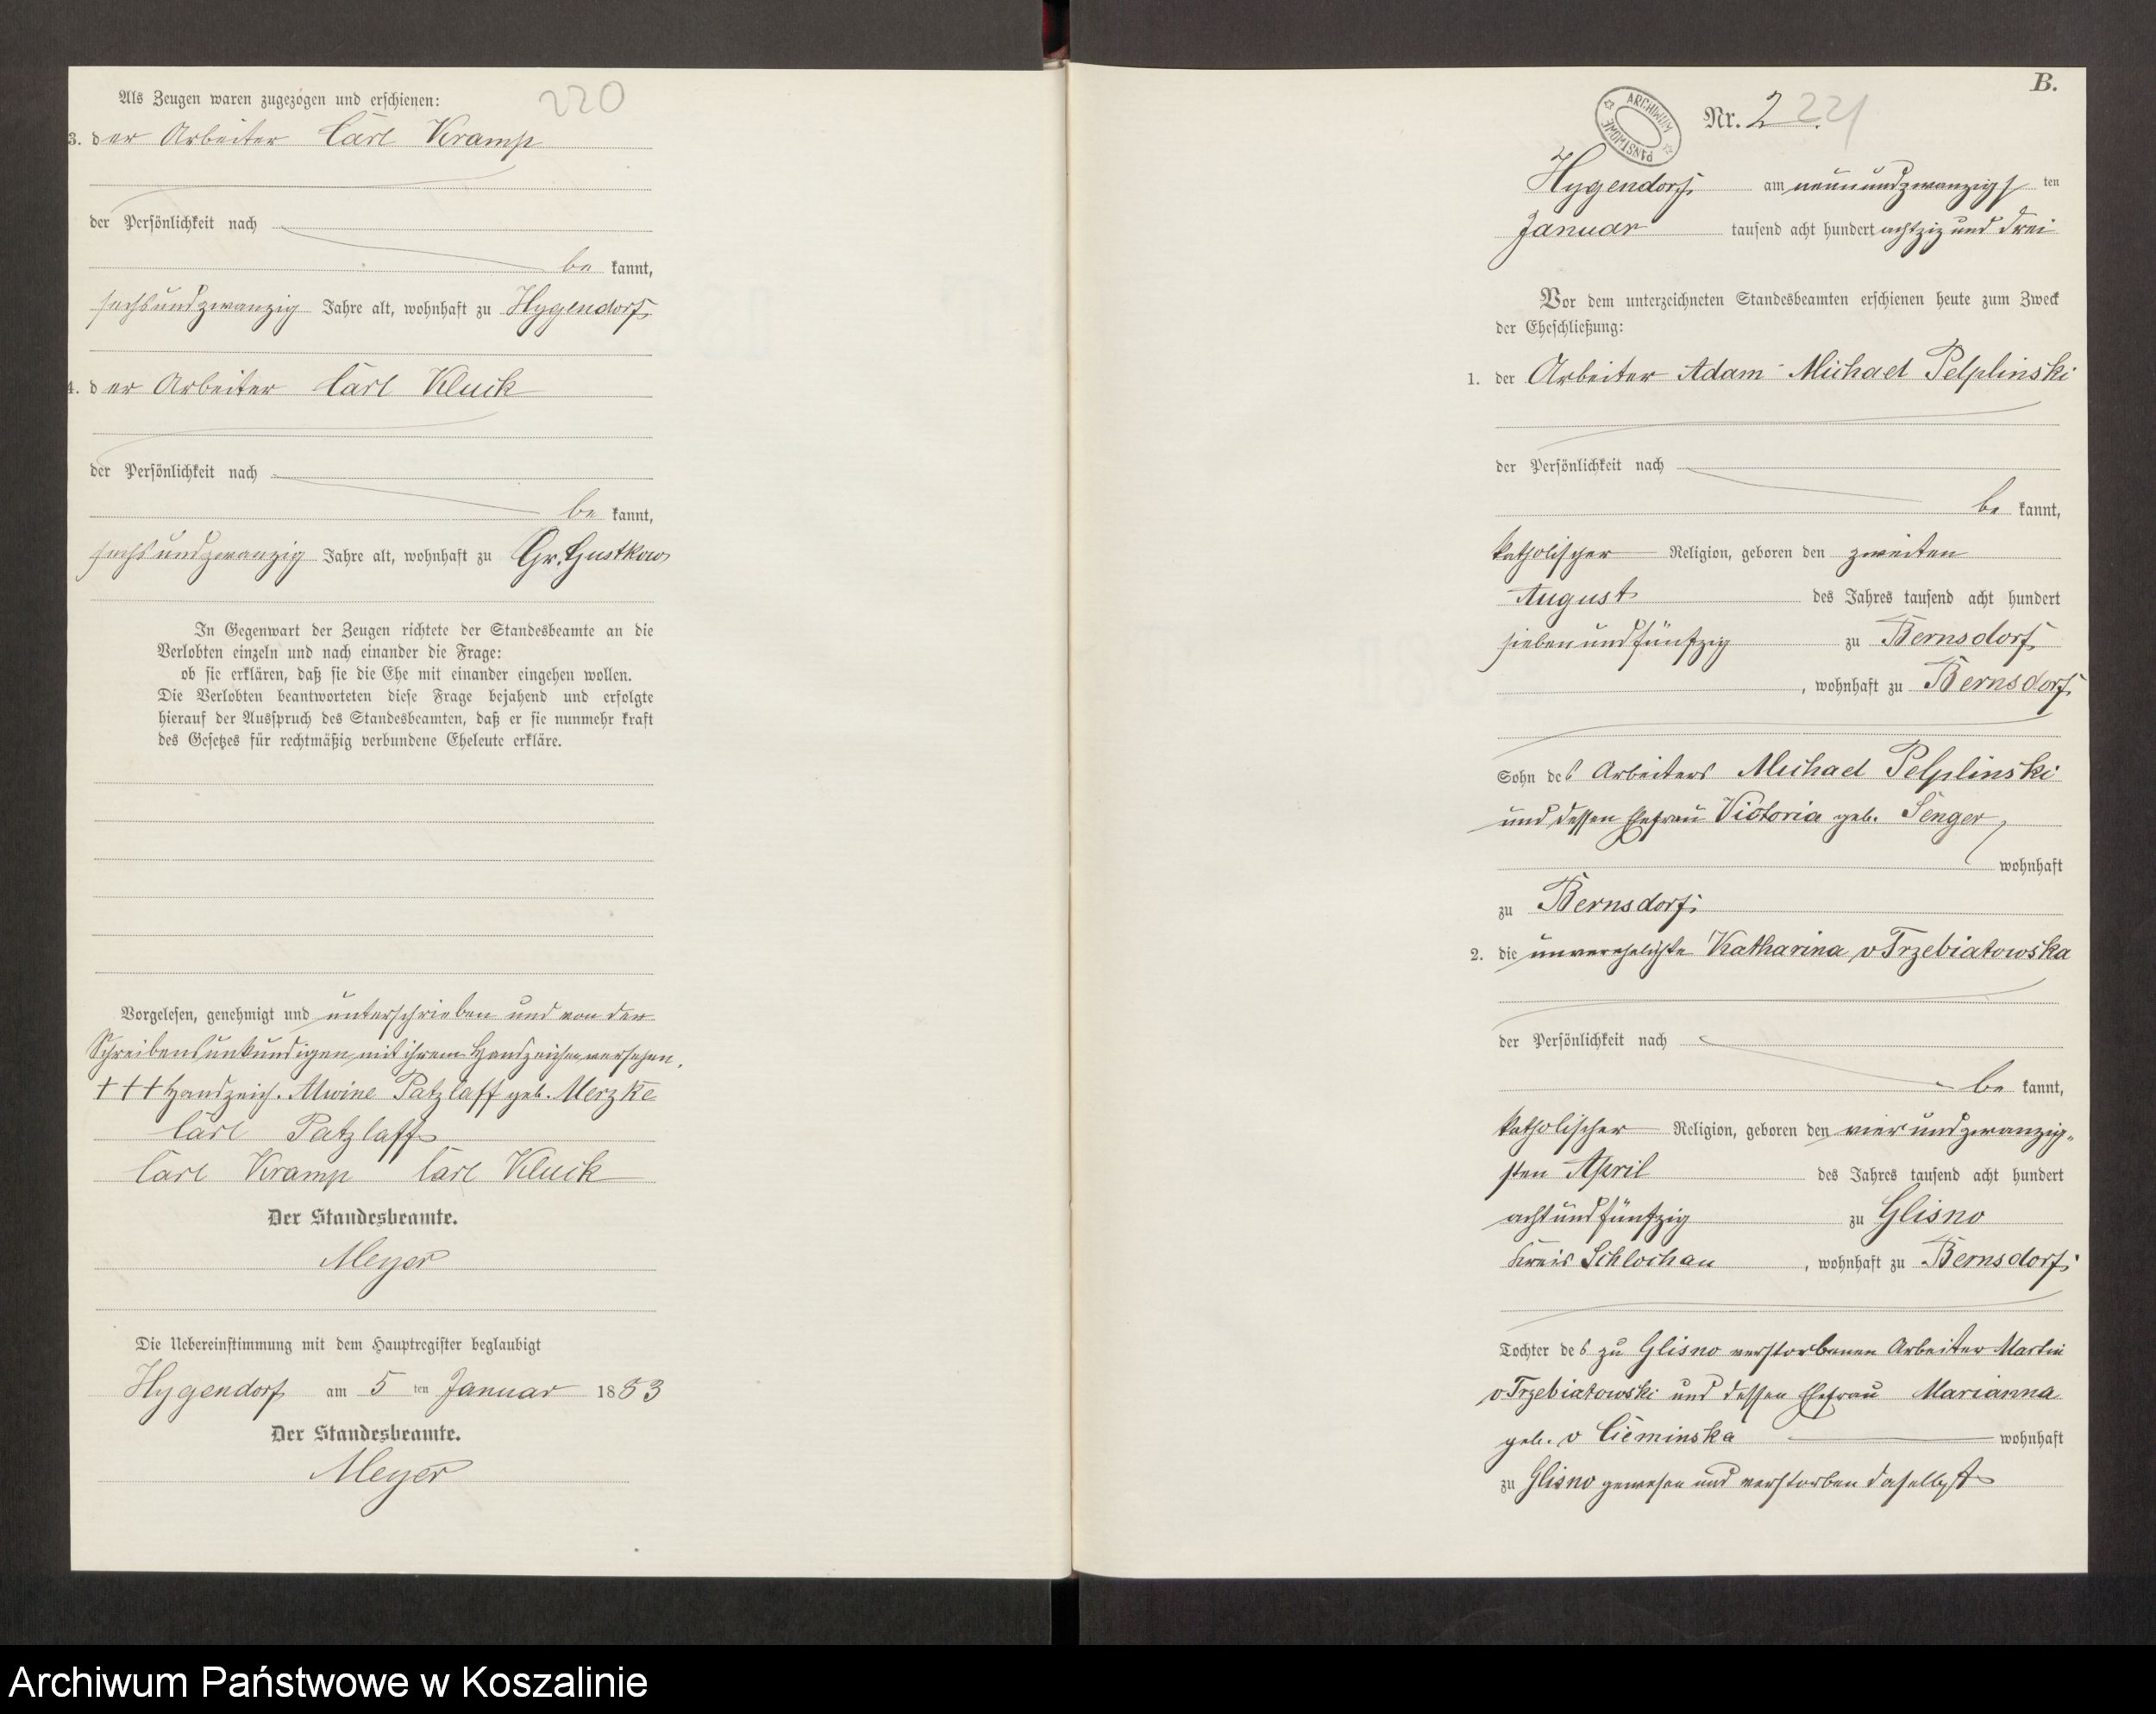 Als Zeugen waren zugezogen und erschienen:
220
3. der Arbeiter Carl Kramp
der Persönlichkeit nach
be kannt,
sechsundzwanzig Jahre alt, wohnhaft zu Hygendorf
4. der Arbeiter Carl Kluck
der Persönlichkeit nach
be kannt,
sechsundzwanzig Jahre alt, wohnhaft zu Gr. Gustkow
In Gegenwart der Zeugen richtete der Standesbeamte an die
Verlobten einzeln und nach einander die Frage:
ob sie erklären, daß sie die Ehe mit einander eingehen wollen.
Die Verlobten beantworteten diese Frage bejahend und erfolgte
hierauf der Ausspruch des Standesbeamten, daß er sie nunmehr kraft
des Gesetzes für rechtmäßig verbundene Eheleute erkläre.
Vorgelesen, genehmigt und unterschrieben und von der
Schreibensunkundigen mit ihrem Handzeichen versehen.
+++ Handzeich. Alwine Patzlaff geb. Merzke
Carl Patzlaff
Carl Kramp Carl Kluck
Der Standesbeamte.
Meyer
Die Uebereinstimmung mit dem Hauptregister beglaubigt
Hygendorf am 5 ten Januar 1883
Der Standesbeamte.
Meyer
B.
ARCHIWUM PAŃSTWOWE
Nr. 2. 221
Hygendorf am neunundzwanzigs ten
Januar tausend acht hundert achtzig und drei
Vor dem unterzeichneten Standesbeamten erschienen heute zum Zweck
der Eheschließung:
1. der Arbeiter Adam Michael Pelplinski
der Persönlichkeit nach
be kannt,
katholischer Religion, geboren den zweiten
August des Jahres tausend acht hundert
siebenundfünfzig zu Bernsdorf
, wohnhaft zu Bernsdorf
Sohn des Arbeiters Michael Pelplinski
und dessen Ehefrau Victoria geb. Senger,
wohnhaft
zu Bernsdorf;
2. die unverehelichte Katharina v Trzebiatowska
der Persönlichkeit nach
be kannt,
katholischer Religion, geboren den vierundzwanzig-
sten April des Jahres tausend acht hundert
achtundfünfzig zu Glisno
Kreis Schlochau , wohnhaft zu Bernsdorf;
Tochter des zu Glisno verstorbenen Arbeiter Martin
v Trzebiatowski und dessen Ehefrau Marianna
geb. v Cieminska wohnhaft
zu Glisno gewesen und verstorben daselbst
Archiwum Państwowe w Koszalinie